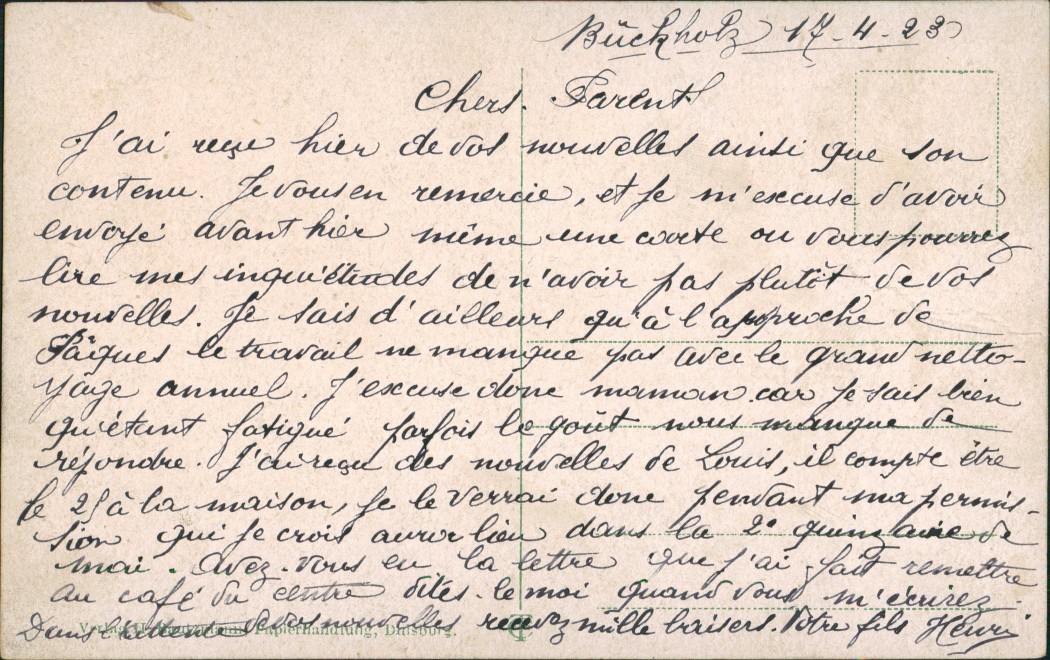 Bückholz 17-4-23
Chers Parents
J'ai reçu hier de vos nouvelles ainsi que son
contenu. Je vous en remercie, et je m'excuse d'avoir
envoyé avant hier même une carte ou vous pourrez
lire mes inquiétudes de n'avoir pas plutôt de vos
nouvelles. Je sais d'ailleurs qu'à l'approche de
Pâques le travail ne manque pas avec le grand netto-
yage annuel. J'excuse donc maman car je sais bien
qu'étant fatigué parfois le goût nous manque de
répondre. J'ai reçu des nouvelles de Louis, il compte être
le 25 à la maison, je le verrai donc pendant ma permis-
sion qui je crois aura lieu dans la 2e quinzaine de
mai. Avez-vous eu la lettre que j'ai fait remettre
au café du centre dites-le moi quand vous m'écrirez.
Dans l'attente de vos nouvelles recevez mille baisers. Votre fils Henri
Papierhandlung, Duisburg.